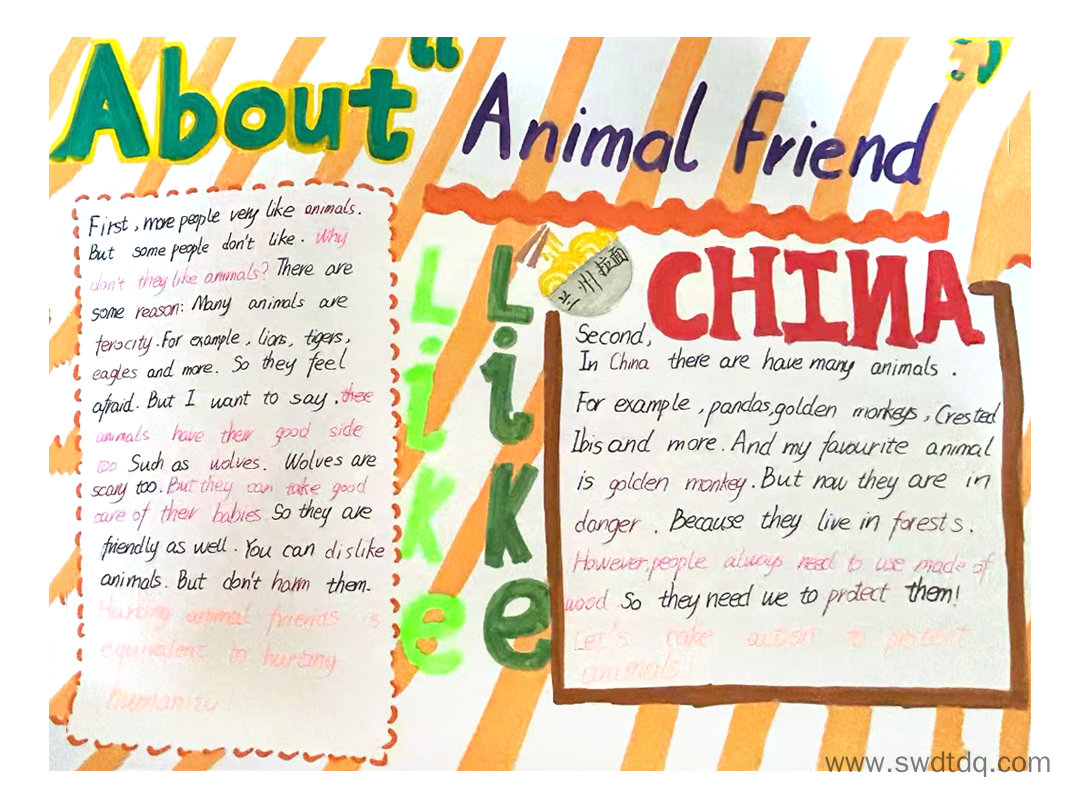 About “ Animal Friend ”
First, more people very like animals.
But some people don't like. Why
don't they like animals? There are
some reason: Many animals are
ferocity. For example, lions, tigers,
eagles and more. So they feel
afraid. But I want to say, these
animals have their good side
too Such as wolves. Wolves are
scary too. But they can take good
care of their babies. So they are
friendly as well. You can dislike
animals. But don't harm them.
Hurting animal friends is
equivalent to hurting
humanity.
Like
Like
兰州拉面
CHINA
Second,
In China there are have many animals.
For example, pandas, golden monkeys, Crested
Ibis and more. And my favourite animal
is golden monkey. But now they are in
danger. Because they live in forests.
However, people always need to use made of
wood. So they need we to protect them!
Let's take action to protect
animals!
www.swdtdq.com